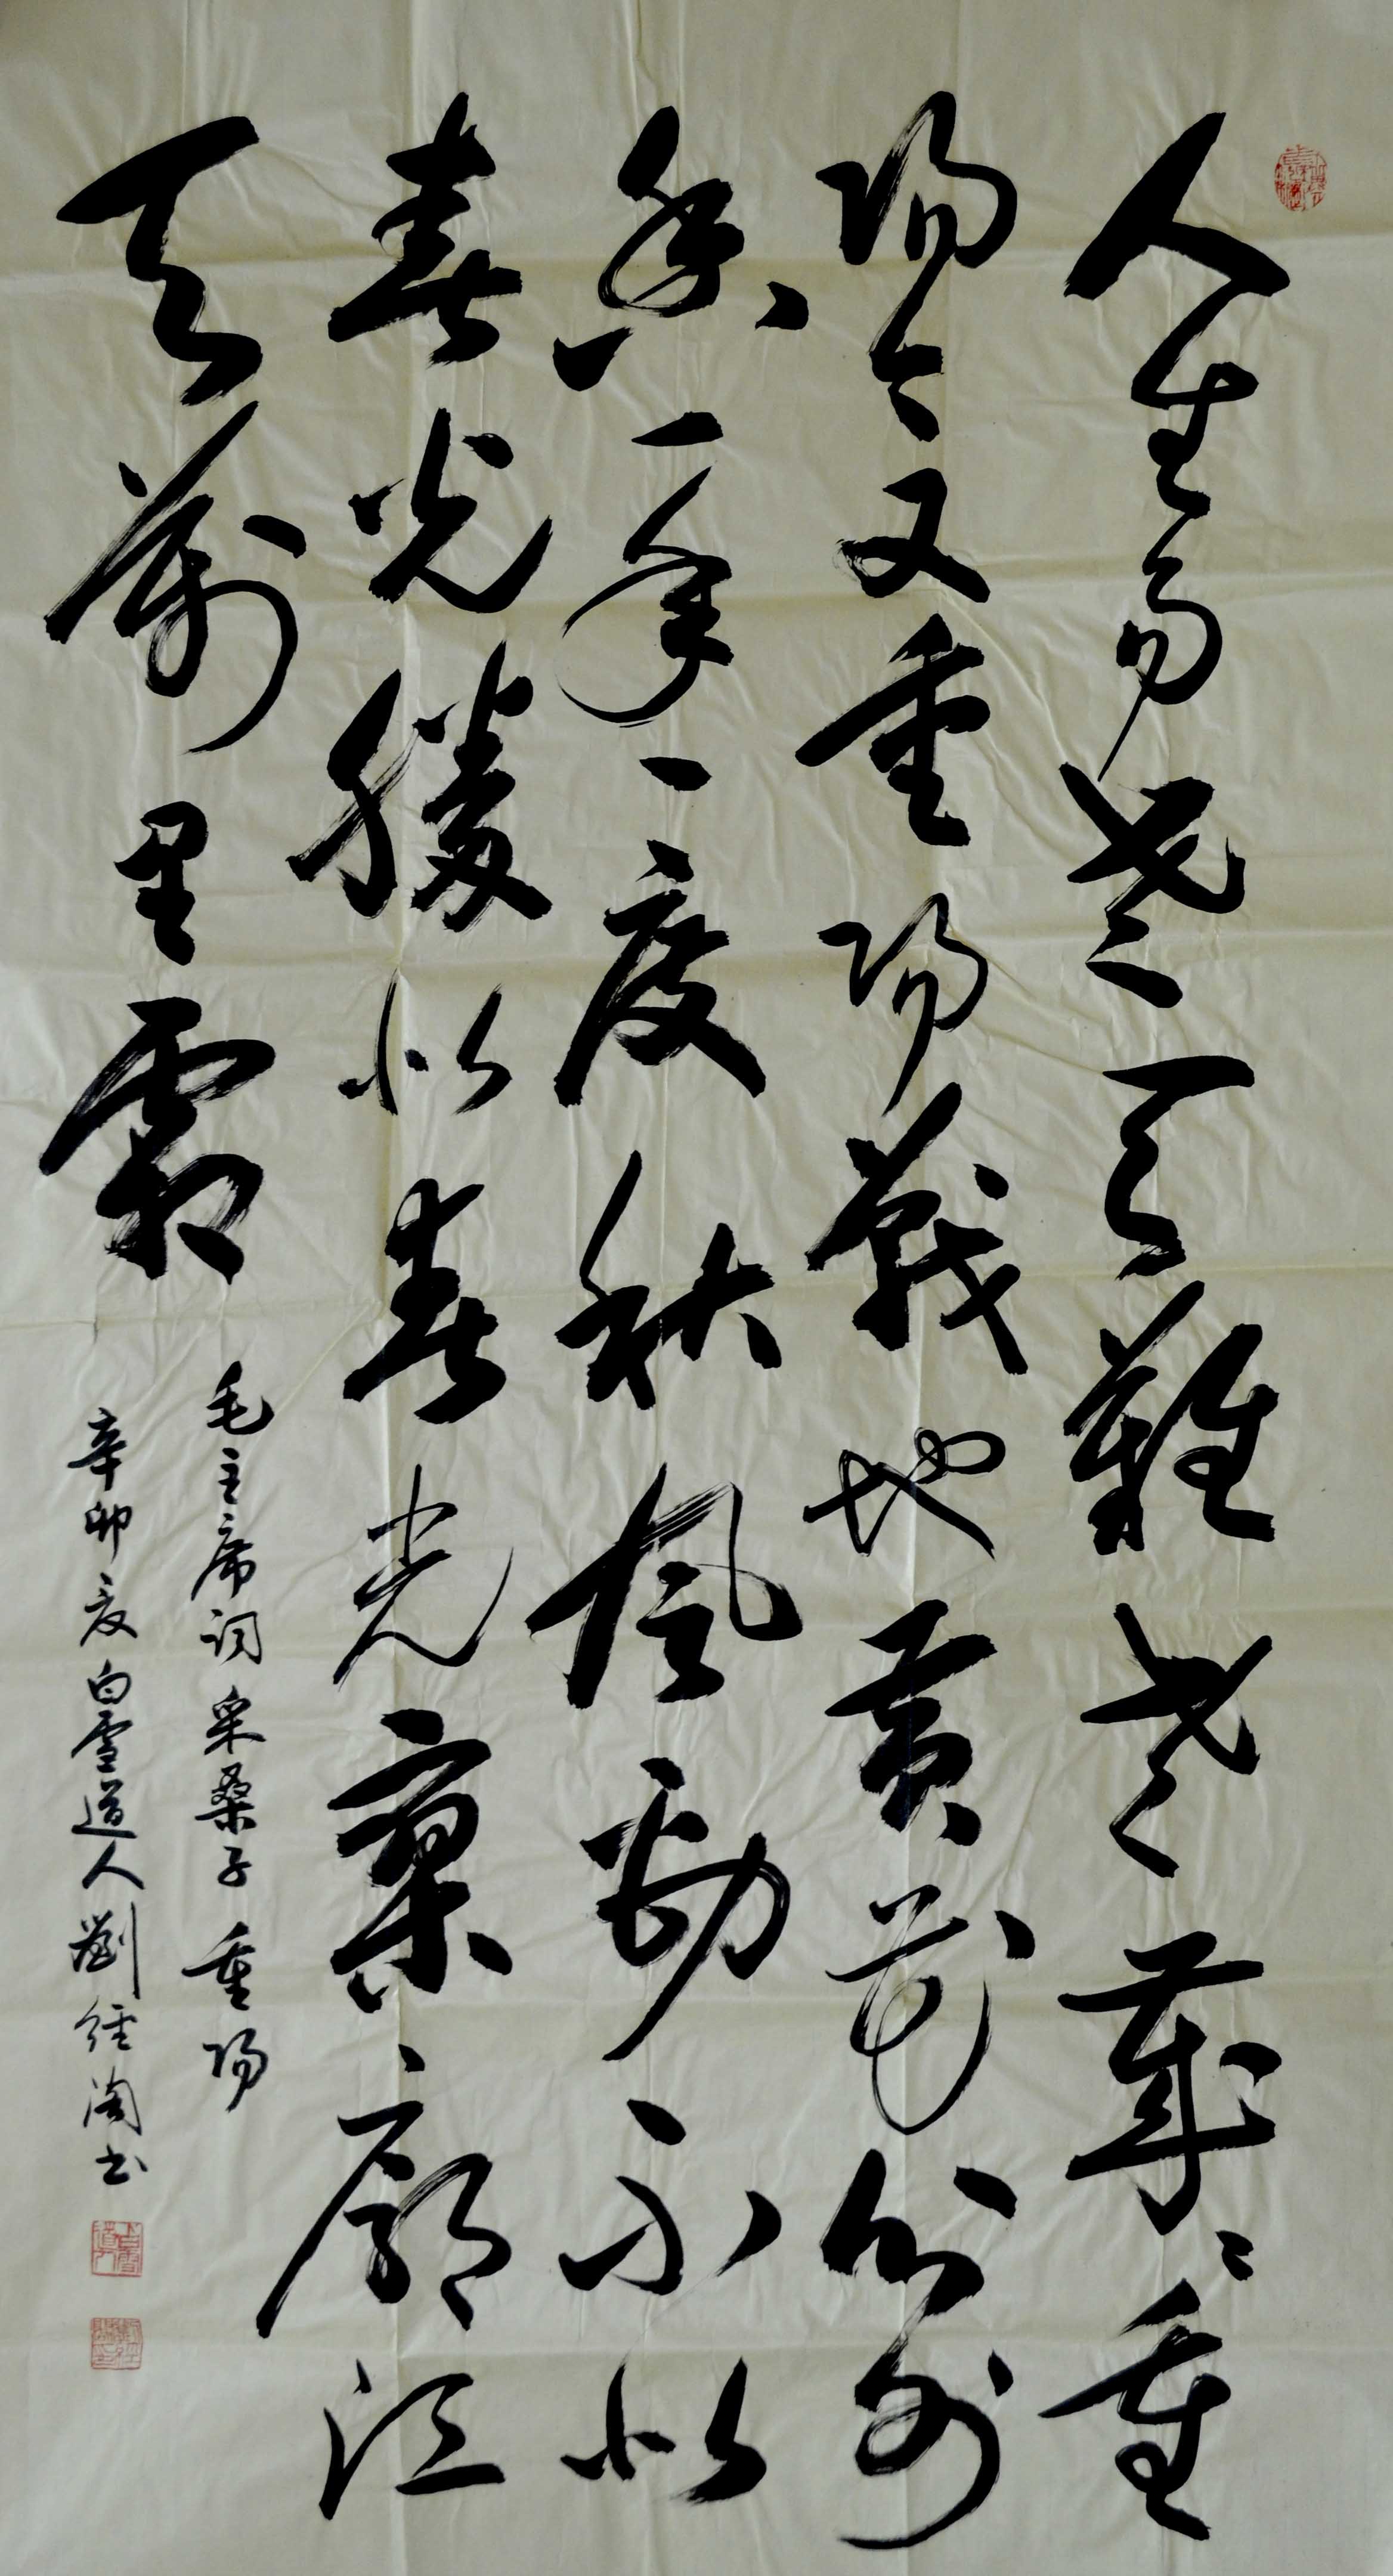 人生易老天難老歲々重
陽今又重陽戰地黃花分外
香一年一度秋風勁不似
春光勝似春光寥廓江
天萬里霜
毛主席詞采桑子重陽
辛卯夏白雪道人劉經書